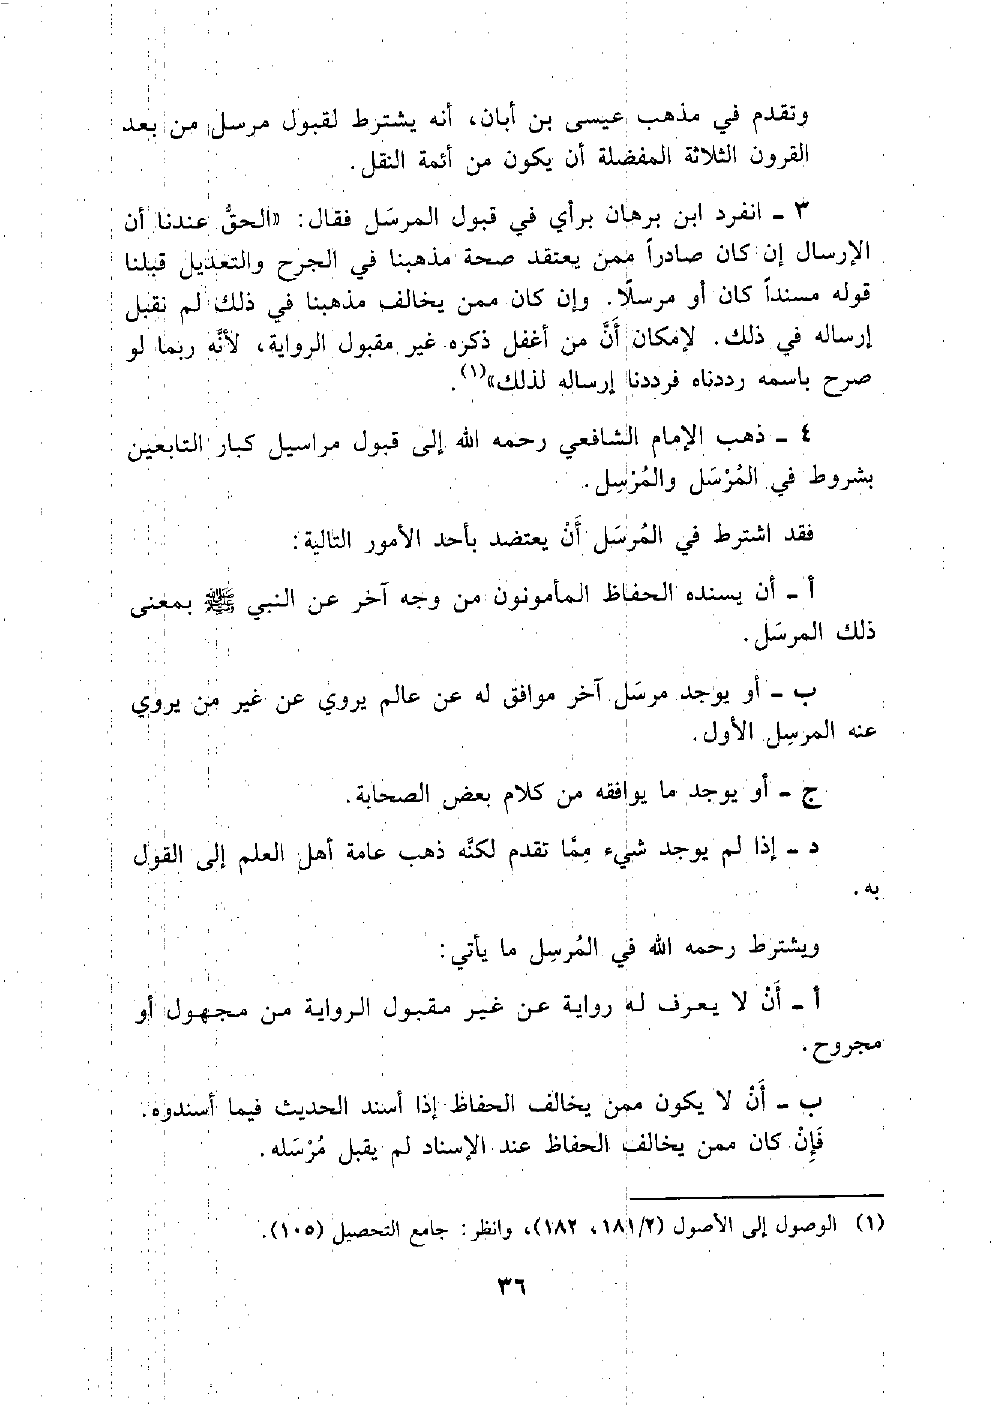 وتقدم في مذهب عيسى بن أبان، أنه يشترط لقبول مرسل من بعد
القرون الثلاثة المفضلة أن يكون من أئمة النقل.
٣ ـ انفرد ابن برهان برأي في قبول المرسَل فقال: «الحقُّ عندنا أن
الإرسال إن كان صادراً ممن يعتقد صحة مذهبنا في الجرح والتعديل قبلنا
قوله مسنداً كان أو مرسلًا. وإن كان ممن يخالف مذهبنا في ذلك لم نقبل
إرساله في ذلك. لإمكان أَنَّ من أغفل ذكره غير مقبول الرواية، لأنَّه ربما لو
صرح باسمه رددناه فرددنا إرساله لذلك»(١).
٤ ـ ذهب الإمام الشافعي رحمه الله إلى قبول مراسيل كبار التابعين
بشروط في المُرْسَل والمُرْسِل.
فقد اشترط في المُرسَل أَنْ يعتضد بأحد الأمور التالية:
أ ـ أن يسنده الحفاظ المأمونون من وجه آخر عن النبي ﷺ بمعنى
ذلك المرسَل.
ب ـ أو يوجد مرسَل آخر موافق له عن عالم يروي عن غير من يروي
عنه المرسِل الأول.
ج ـ أو يوجد ما يوافقه من كلام بعض الصحابة.
د ـ إذا لم يوجد شيء مِمَّا تقدم لكنَّه ذهب عامة أهل العلم إلى القول
به.
ويشترط رحمه الله في المُرسِل ما يأتي:
أ ـ أَنْ لا يعرف له رواية عن غير مقبول الرواية من مجهول أو
مجروح.
ب ـ أَنْ لا يكون ممن يخالف الحفاظ إذا أسند الحديث فيما أسندوه.
فَإِنْ كان ممن يخالف الحفاظ عند الإسناد لم يقبل مُرْسَله.
(١) الوصول إلى الأصول (١٨١/٢، ١٨٢)، وانظر: جامع التحصيل (١٠٥).
٣٦